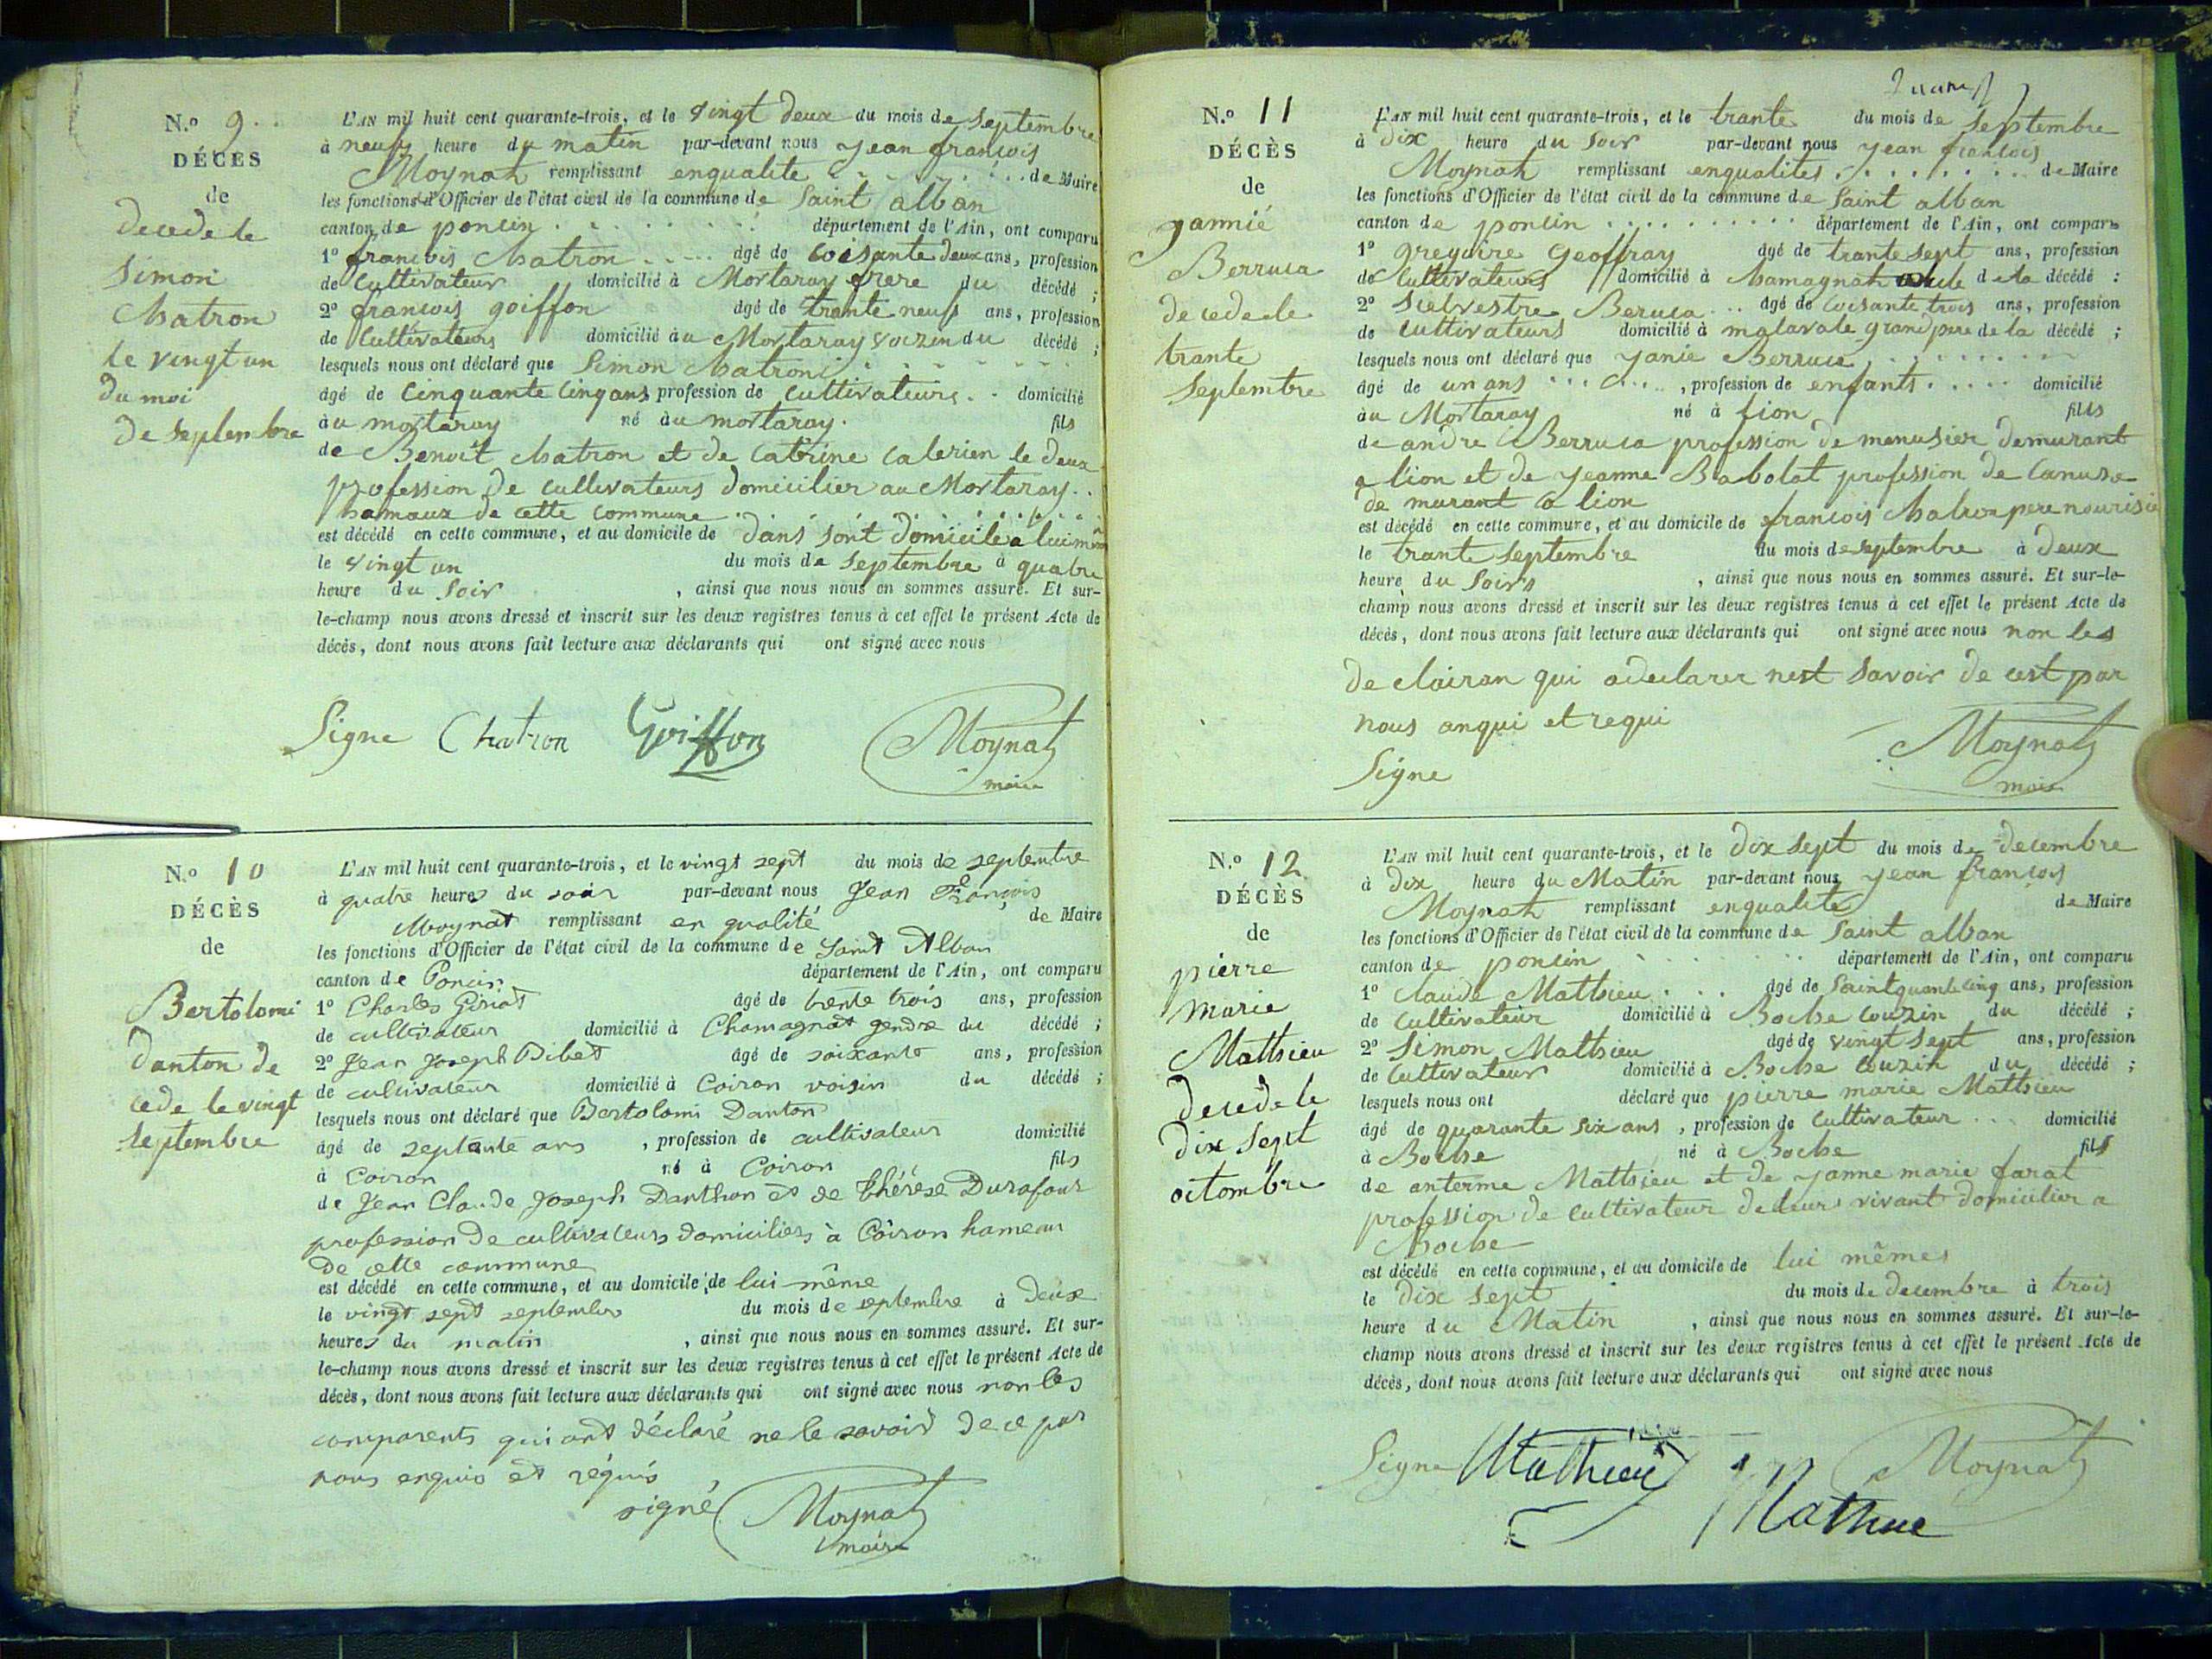 N.º 9.
DÉCÈS
de
decede le
Simon
Chatron
le vingt un
du moi
de Septembre
L'AN mil huit cent quarante-trois, et le vingt deux du mois de Septembre
à neuf heure du matin par-devant nous jean francois
Moynat remplissant enqualite de Maire
les fonctions d'Officier de l'état civil de la commune de Saint alban
canton de poncin département de l'Ain, ont comparu
1º francois Chatron âgé de soisante deux ans, profession
de Cultivateur domicilié à Mortaray frere du décédé ;
2º francois goiffon âgé de trante neuf ans, profession
de Cultivateurs domicilié au Mortaray voizin du décédé ;
lesquels nous ont déclaré que Simon Chatron
âgé de Cinquante Cinq ans profession de Cultivateurs domicilié
àu mortaray né au mortaray. fils
de Benoit Chatron et de Catrine Calerien le deux
profession de cultivateurs domicilier au Mortaray
hamaux de cette commune
est décédé en cette commune, et au domicile de dans sont domicile a lui même
le vingt un du mois de Septembre à quatre
heure du Soir , ainsi que nous nous en sommes assuré. Et sur-
le-champ nous avons dressé et inscrit sur les deux registres tenus à cet effet le présent Acte de
décès, dont nous avons fait lecture aux déclarants qui ont signé avec nous
Signe Chatron Goiffon Moynat
maire
N.º 10
DÉCÈS
de
Bertolomi
danton de
cede le vingt
septembre
L'AN mil huit cent quarante-trois, et le vingt sept du mois de septembre
à quatre heures du soir par-devant nous Jean François
Moynat remplissant en qualité de Maire
les fonctions d'Officier de l'état civil de la commune de Saint Alban
canton de Poncin département de l'Ain, ont comparu
1º Charles Goriat âgé de trente trois ans, profession
de cultivateur domicilié à Chamagnat gendre du décédé ;
2º Jean Joseph Bibet âgé de soixante ans, profession
de cultivateur domicilié à Coiron voisin du décédé ;
lesquels nous ont déclaré que Bertolomi Danton
âgé de septante ans , profession de cultivateur domicilié
à Coiron né à Coiron fils
de Jean Claude Joseph Danthon et de Thérèse Durafour
profession de cultivateurs domiciliers à Coiron hameau
de cette commune
est décédé en cette commune, et au domicile de lui-même
le vingt sept septembre du mois de septembre à deux
heures du matin , ainsi que nous nous en sommes assuré. Et sur-
le-champ nous avons dressé et inscrit sur les deux registres tenus à cet effet le présent Acte de
décès, dont nous avons fait lecture aux déclarants qui ont signé avec nous non les
comparents qui ont déclaré ne le savoir de ce par
nous enquis et requis
signé Moynat
maire
N.º 11
DÉCÈS
de
yannié
Berruca
decedele
trante
Septembre
L'AN mil huit cent quarante-trois, et le trante du mois de Septembre
à dix heure du Soir par-devant nous jean francois
Moynat remplissant enqualites de Maire
les fonctions d'Officier de l'état civil de la commune de Saint alban
canton de poncin département de l'Ain, ont comparu
1º gregoire Geoffray âgé de trante sept ans, profession
de Cultivateurs domicilié à Chamagnat de la décédé ;
2º Sielvestre Beruca âgé de soisante trois ans, profession
de cultivateurs domicilié à malavale grand pere de la décédé ;
lesquels nous ont déclaré que yanie Berruca
âgé de un ans , profession de enfants domicilié
àu Mortaray né à lion fills
de andre Berruca profession de menusier demurant
a lion et de yeanne Babolat profession de Canuse
de murant a lion
est décédé en cette commune, et au domicile de francois Chatron pere nourisie
le trante septembre du mois de septembre à deux
heure du Soirs , ainsi que nous nous en sommes assuré. Et sur-le-
champ nous avons dressé et inscrit sur les deux registres tenus à cet effet le présent Acte de
décès, dont nous avons fait lecture aux déclarants qui ont signé avec nous non les
de clairan qui adeclarer nest savoir de cest par
nous anqui et requi
Signe Moynat
maire
N.º 12
DÉCÈS
de
pierre
marie
Mathieu
decede le
dix sept
octombre
L'AN mil huit cent quarante-trois, et le dix sept du mois de decembre
à dix heure du Matin par-devant nous jean francois
Moynat remplissant enqualite de Maire
les fonctions d'Officier de l'état civil de la commune de Saint alban
canton de poncin département de l'Ain, ont comparu
1º Claude Mathieu âgé de ans, profession
de Cultivateur domicilié à Boche couzin du décédé ;
2º Simon Mathieu âgé de vingt sept ans, profession
de Cultivateur domicilié à Boche couzin du décédé ;
lesquels nous ont déclaré que pierre marie Mathieu
âgé de quarante six ans , profession de Cultivateur domicilié
à Boche né à Boche fils
de anterme Mathieu et de yanne marie farat
profession de cultivateur de leur vivant domicilier a
Boche
est décédé en cette commune, et au domicile de lui mêmes
le dix sept du mois de decembre à trois
heure du Matin , ainsi que nous nous en sommes assuré. Et sur-le-
champ nous avons dressé et inscrit sur les deux registres tenus à cet effet le présent Acte de
décès, dont nous avons fait lecture aux déclarants qui ont signé avec nous
Signe Mathieu Moynat
Mathieu